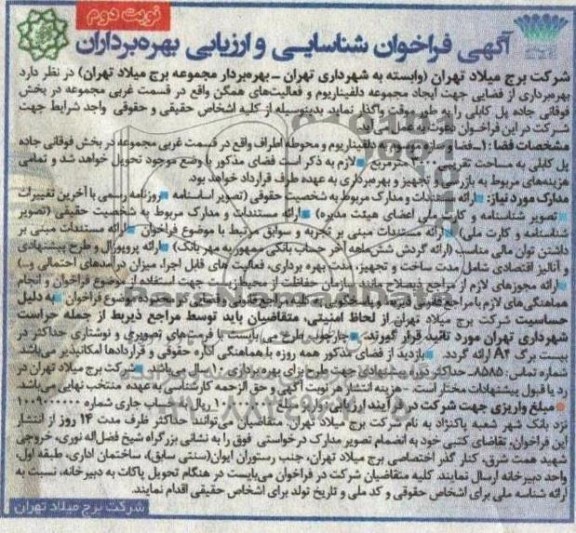 نوبت دوم
آگهی فراخوان شناسایی و ارزیابی بهره‌برداران
شرکت برج میلاد تهران (وابسته به شهرداری تهران - بهره‌بردار مجموعه برج میلاد تهران) در نظر دارد
بهره‌برداری از فضایی جهت ایجاد مجموعه دلفیناریوم و فعالیت‌های همگن واقع در قسمت غربی مجموعه در بخش
فوقانی جاده پل کابلی را به طور موقت واگذار نماید. بدینوسیله از کلیه اشخاص حقیقی و حقوقی واجد شرایط جهت
شرکت در این فراخوان دعوت به عمل می‌آید.
مشخصات فضا: ۱- فضا و دلفیناریوم و محوطه اطراف واقع در قسمت غربی مجموعه در بخش فوقانی جاده
پل کابلی به مساحت مترمربع لازم به ذکر است فضای مذکور با وضع موجود تحویل خواهد شد و تمامی
هزینه‌های مربوط به بازرسی و تجهیز و بهره‌برداری به عهده طرف قرارداد خواهد بود.
مدارک مورد نیاز: ارائه مستندات و مدارک مربوط به شخصیت حقوقی (تصویر اساسنامه روزنامه رسمی با آخرین تغییرات
تصویر شناسنامه و کارت ملی اعضای هیئت مدیره) ارائه مستندات و مدارک مربوط به شخصیت حقیقی (تصویر
شناسنامه و کارت ملی) ارائه مستندات مبنی بر تجربه و سوابق مرتبط با موضوع فراخوان ارائه مستندات مبنی بر
داشتن توان مالی مناسب (ارائه گردش شش‌ماهه آخر حساب بانکی ممهور به مهر بانک) ارائه پروپوزال و طرح پیشنهادی
و آنالیز اقتصادی شامل مدت ساخت و تجهیز، مدت بهره برداری، فعالیت های قابل اجرا، میزان درآمدهای احتمالی و...)
ارائه مجوزهای لازم از مراجع ذیصلاح مانند سازمان حفاظت از محیط زیست جهت استفاده از موضوع فراخوان و انجام
هماهنگی‌های لازم با مراجع موضوع فراخوان به دلیل
حساسیت شرکت برج میلاد تهران از لحاظ امنیتی، متقاضیان باید توسط مراجع ذیربط از جمله حراست
شهرداری تهران مورد تائید قرار گیرند. چارچوب طرح می بایست با فرمت‌های تصویری و نوشتاری حداکثر در
بیست برگ A4 ارائه گردد. بازدید از فضای مذکور همه روزه با هماهنگی اداره حقوقی و قراردادها امکانپذیر می‌باشد
شماره تماس: ۸۵۸۵ حداکثر دوره پیشنهادی جهت طرح برای بهره برداری ۱۰ سال می‌باشد. شرکت برج میلاد تهران در
رد یا قبول پیشنهادات مختار است - هزینه انتشار هر نوبت آگهی و حق الزحمه کارشناسی به عهده منتخب نهایی می‌باشد.
مبلغ واریزی جهت شرکت در فرآیند ارزیابی ریال جاری شماره
نزد بانک شهر شعبه پاکنژاد به نام شرکت برج میلاد تهران، متقاضیان می‌توانند حداکثر ظرف مدت ۱۴ روز از انتشار
این فراخوان، تقاضای کتبی خود به انضمام تصویر مدارک درخواستی فوق را به نشانی بزرگراه شیخ فضل‌اله نوری، خروجی
شهید همت شرق، کنار گذر اختصاصی برج میلاد تهران، جنب رستوران ایوان(سنتی سابق)، ساختمان اداری، طبقه اول،
واحد دبیرخانه ارسال نمایند. کلیه متقاضیان شرکت در فراخوان می‌بایست در هنگام تحویل پاکات به دبیرخانه، نسبت به
ارائه شناسه ملی برای اشخاص حقوقی و کد ملی و تاریخ تولد برای اشخاص حقیقی اقدام نمایند.
شرکت برج میلاد تهران